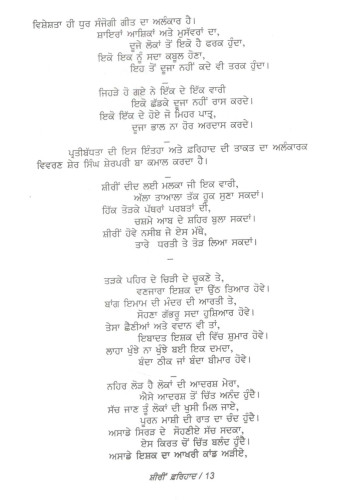 ਵਿਸ਼ੇਸ਼ਤਾ ਹੀ ਧੁਰ ਸੰਜੋਗੀ ਗੀਤ ਦਾ ਅਲੰਕਾਰ ਹੈ।
ਸ਼ਾਇਰਾਂ ਆਸ਼ਿਕਾਂ ਅਤੇ ਮੁਸੱਵਰਾਂ ਦਾ,
ਦੂਜੇ ਲੋਕਾਂ ਤੋਂ ਇਕੋ ਹੈ ਫਰਕ ਹੁੰਦਾ,
ਇਕੋ ਇਕ ਨੂੰ ਸਦਾ ਕਬੂਲ ਹੋਣਾ,
ਇਹ ਤੋਂ ਦੂਜਾ ਨਹੀਂ ਕਦੇ ਵੀ ਤਰਕ ਹੁੰਦਾ।
—
ਜਿਹੜੇ ਹੋ ਗਏ ਨੇ ਇੱਕ ਦੇ ਇੱਕ ਵਾਰੀ
ਇਕੋ ਛੱਡਕੇ ਦੂਜਾ ਨਹੀਂ ਰਾਸ ਕਰਦੇ।
ਇਕੋ ਇੱਕ ਦੇ ਹੋਏ ਜੋ ਮਿਹਰ ਪਾਤ੍ਰ,
ਦੂਜਾ ਭਾਲ ਨਾ ਹੋਰ ਅਰਦਾਸ ਕਰਦੇ।
ਪ੍ਰਤੀਬੱਧਤਾ ਦੀ ਇਸ ਇੰਤਹਾ ਅਤੇ ਫ਼ਰਿਹਾਦ ਦੀ ਤਾਕਤ ਦਾ ਅਲੰਕਾਰਕ
ਵਿਵਰਣ ਸ਼ੇਰ ਸਿੰਘ ਸ਼ੇਰਪਰੀ ਬਾ ਕਮਾਲ ਕਰਦਾ ਹੈ।
ਸ਼ੀਰੀਂ ਦੀਦ ਲਈ ਮਲਕਾ ਜੀ ਇਕ ਵਾਰੀ,
ਅੱਲਾ ਤਾਆਲਾ ਤੱਕ ਹੂਕ ਸੁਣਾ ਸਕਦਾਂ।
ਹਿੱਕ ਤੋੜਕੇ ਪੱਥਰਾਂ ਪਰਬਤਾਂ ਦੀ,
ਚਸ਼ਮੇ ਆਬ ਦੇ ਸ਼ਹਿਰ ਬੁਲਾ ਸਕਦਾਂ।
ਸ਼ੀਰੀਂ ਹੋਵੇ ਨਸੀਬ ਜੇ ਏਸ ਮੱਥੇ,
ਤਾਰੇ ਧਰਤੀ ਤੇ ਤੋੜ ਲਿਆ ਸਕਦਾਂ।
—
ਤੜਕੇ ਪਹਿਰ ਦੇ ਚਿੜੀ ਦੇ ਚੂਕਣੇ ਤੇ,
ਵਣਜਾਰਾ ਇਸ਼ਕ ਦਾ ਉੱਠ ਤਿਆਰ ਹੋਵੇ।
ਬਾਂਗ ਇਮਾਮ ਦੀ ਮੰਦਰ ਦੀ ਆਰਤੀ ਤੇ,
ਸੋਹਣਾ ਗੱਭਰੂ ਸਦਾ ਹੁਸ਼ਿਆਰ ਹੋਵੇ।
ਤੇਸਾ ਛੈਣੀਆਂ ਅਤੇ ਵਦਾਨ ਵੀ ਤਾਂ,
ਇਬਾਦਤ ਇਸ਼ਕ ਦੀ ਵਿੱਚ ਸ਼ੁਮਾਰ ਹੋਵੇ।
ਲਾਹਾ ਖੁੰਝੇ ਨਾ ਖੁੰਝੇ ਬਈ ਇਕ ਦਮਦਾ,
ਬੰਦਾ ਠੀਕ ਜਾਂ ਬੰਦਾ ਬੀਮਾਰ ਹੋਵੇ।
—
ਨਹਿਰ ਲੋੜ ਹੈ ਲੋਕਾਂ ਦੀ ਆਦਰਸ਼ ਮੇਰਾ,
ਐਸੇ ਆਦਰਸ਼ ਤੋਂ ਚਿੱਤ ਅਨੰਦ ਹੁੰਦੈ।
ਸੱਚ ਜਾਣ ਤੂੰ ਲੋਕਾਂ ਦੀ ਖੁਸੀ ਮਿਲ ਜਾਏ,
ਪੂਰਨ ਮਾਸ਼ੀ ਦੀ ਰਾਤ ਦਾ ਚੰਦ ਹੁੰਦੈ।
ਅਸਾਡੇ ਸਿਰੜ ਦੇ ਸੋਹਣੀਏ ਸੱਚ ਸਦਕਾ,
ਏਸ ਕਿਰਤ ਚੋਂ ਚਿੱਤ ਬਲੰਦ ਹੁੰਦੈ।
ਅਸਾਡੇ ਇਸ਼ਕ ਦਾ ਆਖਰੀ ਕਾਂਡ ਅੜੀਏ,
ਸ਼ੀਰੀਂ ਫ਼ਰਿਹਾਦ / 13